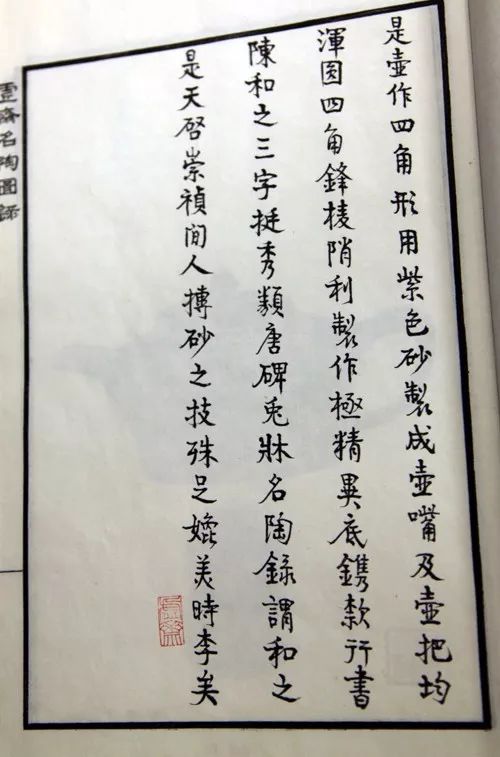 是壺作四角形用紫色砂製成壺嘴及壺把均
渾圆四角鋒棱陗利製作極精異底鐫欵行書
陳和之三字挺秀類唐碑兎牀名陶錄謂和之
是天启崇禎間人摶砂之技殊足媲美時李矣
虛齋
虛齋名陶圖錄